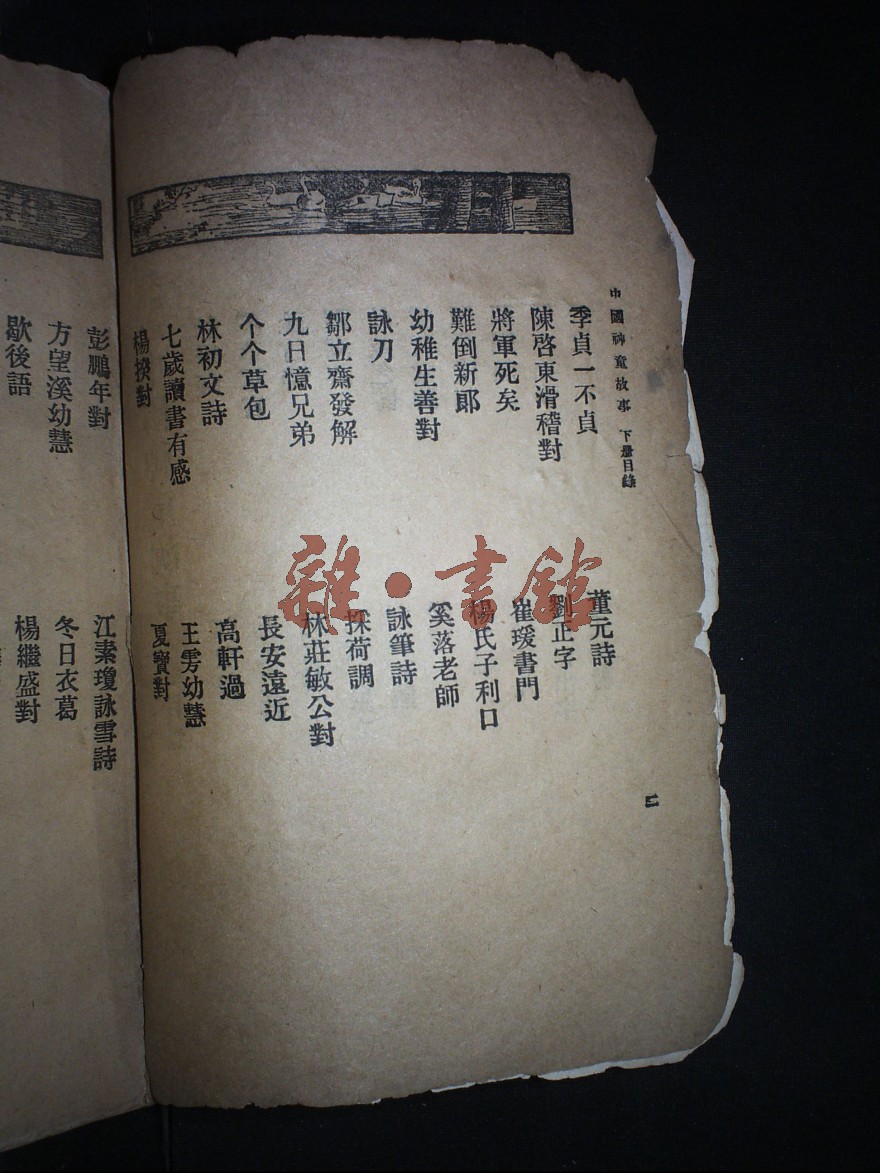 中國神童故事 下册目錄
季貞一不貞
董元詩
陳啓東滑稽對
劉正字
將軍死矣
崔瑗書門
難倒新郎
楊氏子利口
幼稚生善對
奚落老師
詠刀
詠筆詩
鄒立齋發解
採荷調
九日憶兄弟
林莊敏公對
个个草包
長安遠近
林初文詩
高軒過
七歲讀書有感
王雱幼慧
楊揆對
夏寶對
二
彭鵬年對
江素瓊詠雪詩
方望溪幼慧
冬日衣葛
歇後語
楊繼盛對
雜·書館